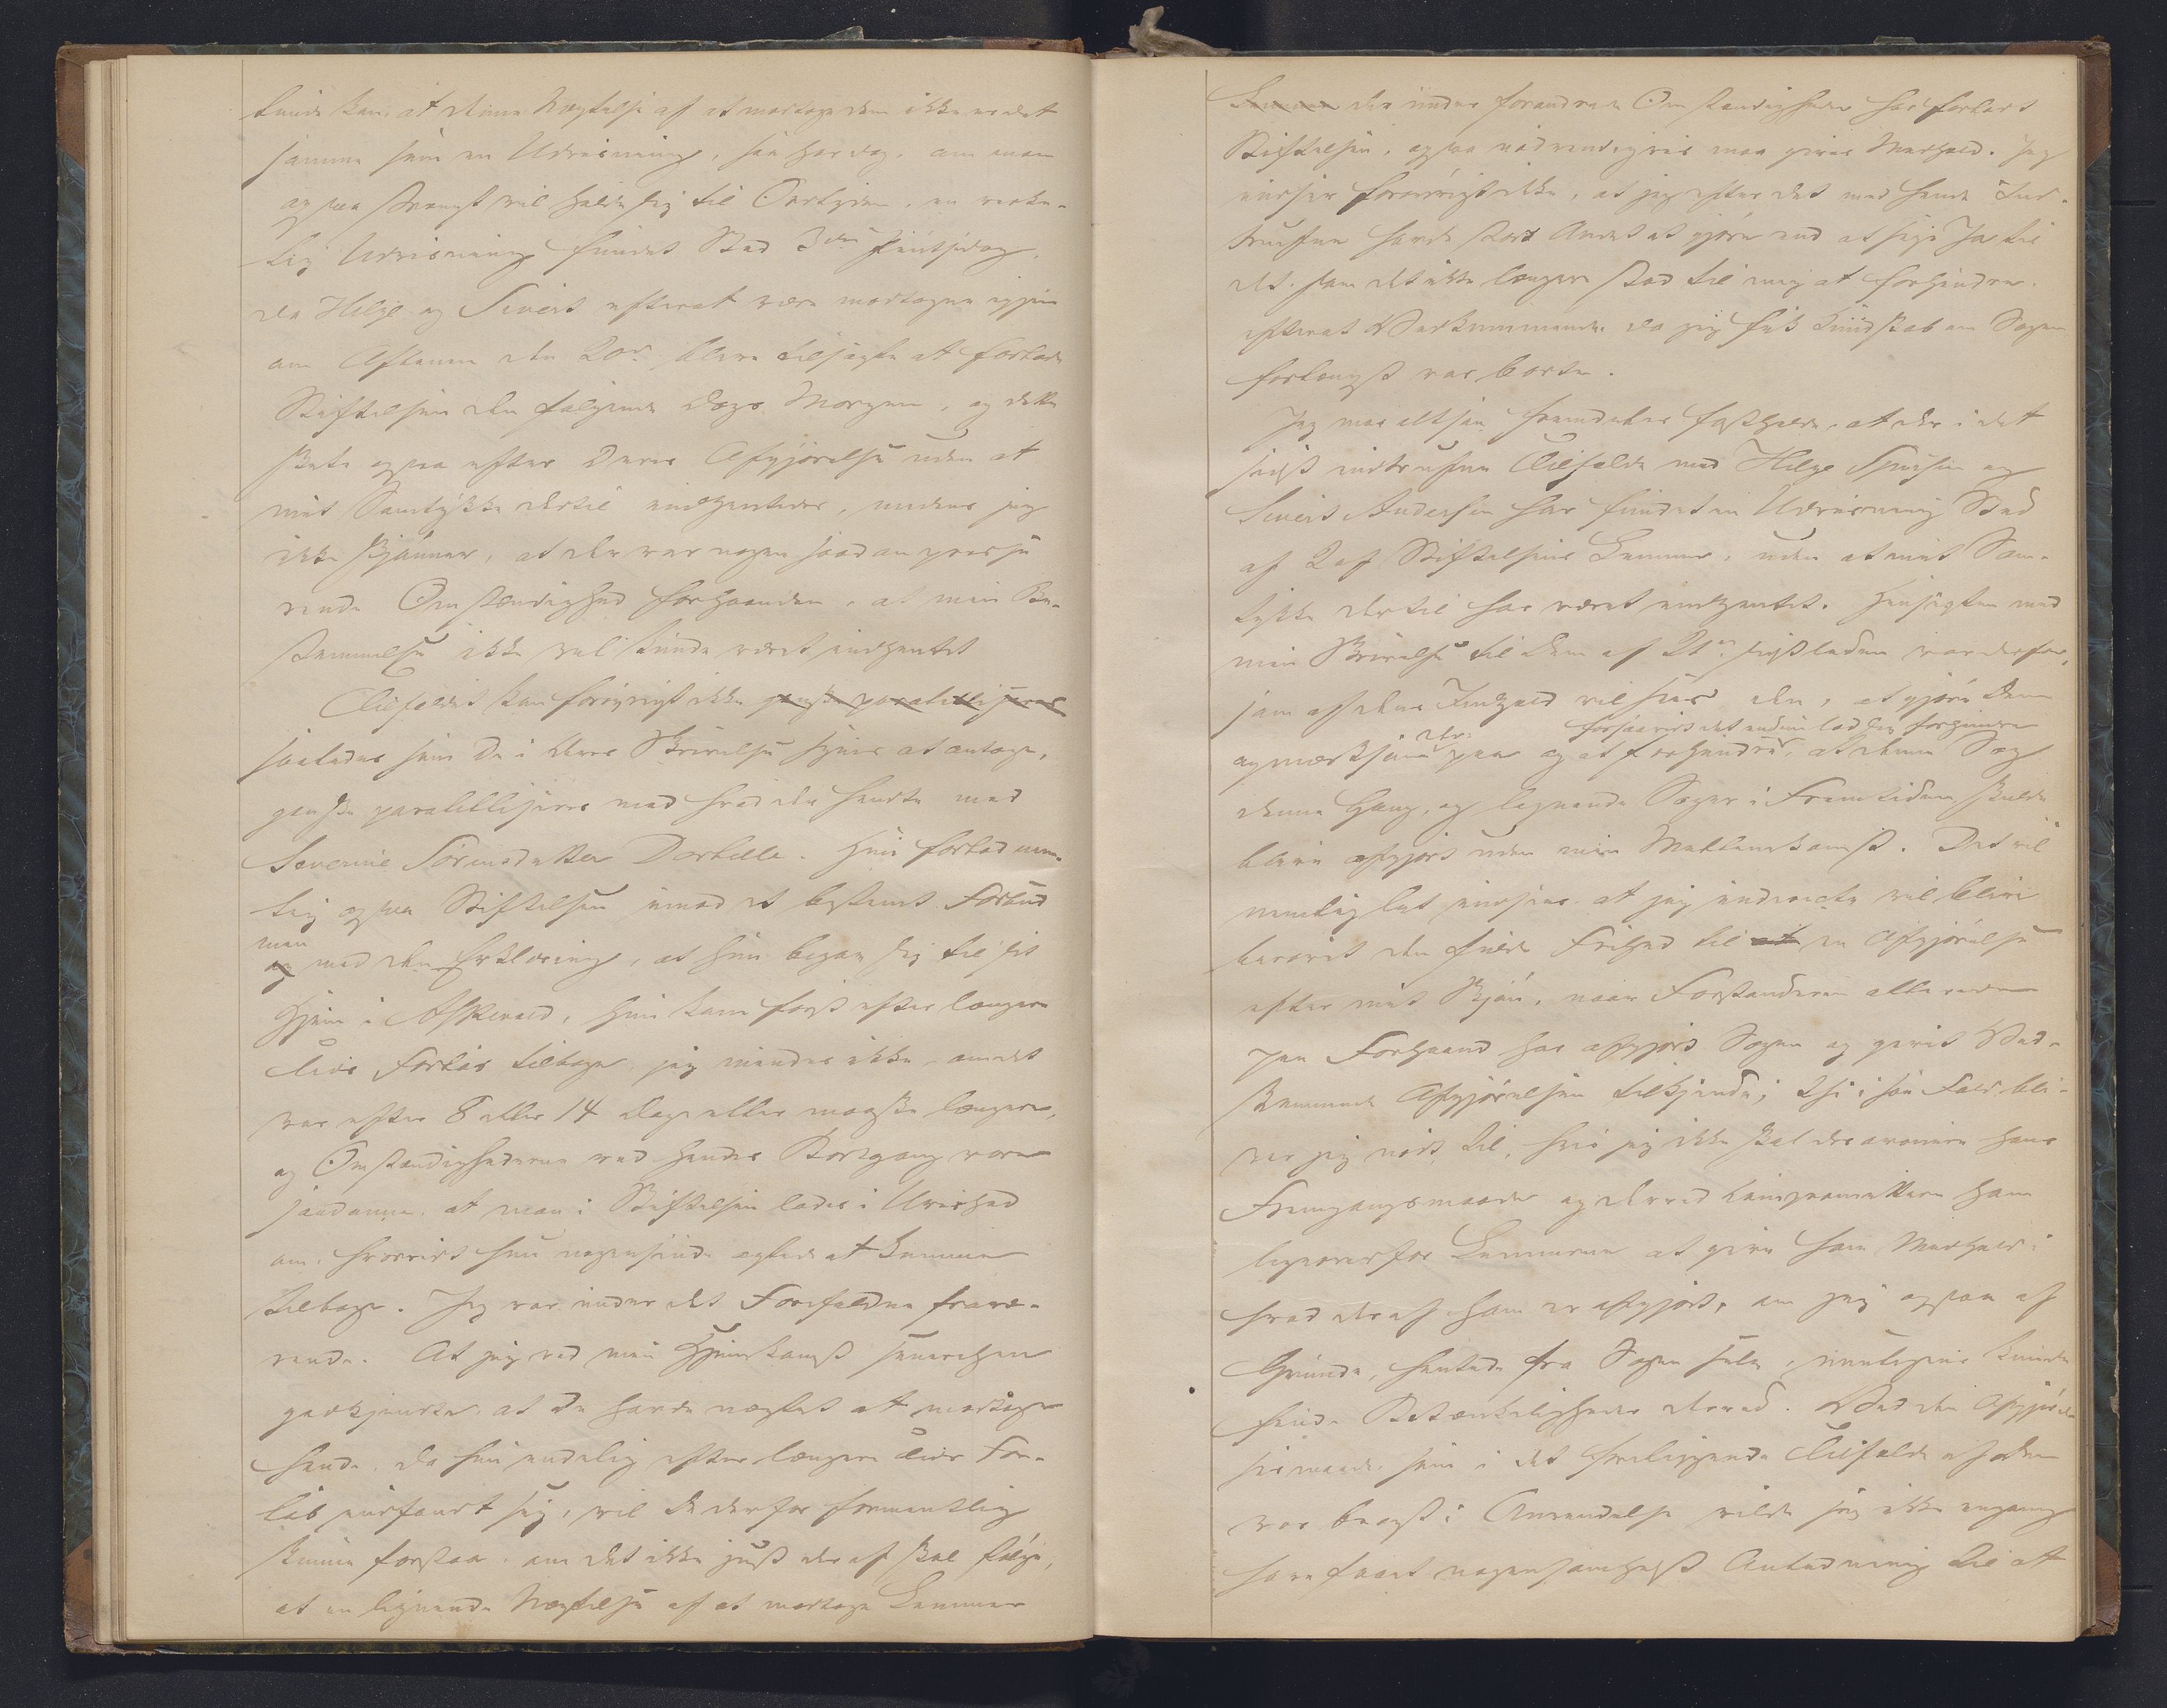 kunde kan, at denne Nægtelse af at modtage dem ikke er det
samme som en Udvisning, saa har dog, om man
ogsaa strengt vil holde sig til Ordlyden, en virke-
lig Udvisning fundet Sted 3die Pintsedag,
da Helge og Sivert efterat være modtagne igjen
om Aftenen den 20de bleve tilsagte at forlade
Stiftelsen den følgende Dags Morgen, og dette
skete ogsaa efter Deres Afgjørelse uden at
mit Samtykke dertil indhentedes, medens jeg
ikke skjønner, at der var nogen saadan pressе-
rende Omstændighed forhaanden, at min Be-
stemmelse ikke vel kunde været indhentet
Tilfældet kan forøvrigt ikke ganske paralelliseres
saaledes som De i Deres Skrivelse synes at antage,
ganske paralelliseres med hvad der hændte med
Severine Sörensdatter Dortelle. Hun forlod nem-
lig ogsaa Stiftelsen imod et bestemt Forbud
men
og med den Erklæring, at hun begav sig til sit
Hjem i Askevold, hun kom først efter længere
Tids Forløb tilbage, jeg mindes ikke om det
var efter 8 eller 14 Dage eller maaske længere,
og Omstændighederne ved hendes Bortgang vare
saadanne, at man i Stiftelsen lodes i Uvished
om, hvorvidt hun nogensinde agtede at komme
tilbage. Jeg var under det Forefaldne fravæ-
rende. At jeg ved min Hjemkomst senerehen
godkjendte, at De havde nægtet at modtage
hende, da hun endelig efter længere Tids For-
løb indfandt sig, vil De derfor formentlig
kunne forstaa, om det ikke just deraf skal følge,
at en lignende Nægtelse af at modtage Lemmer
Lemmer der under forandrede Omstændigheder har forladt
Stiftelsen, ogsaa nødvendigvis maa gives Medhold. Jeg
indser forøvrigt ikke, at jeg efter det med hende Ind-
trufne havde stort Andet at gjøre end at sige Ja til
det, som det ikke længere stod til mig at forhindre,
efterat Vedkommende da jeg fik Kundskab om Sagen
forlængst var borte.
Jeg maa altsaa fremdeles fastholde, at der i det
sidst indtrufne Tilfælde med Helge Sjursen og
Sivert Andersen har fundet en Udvisning Sted
af 2 af Stiftelsens Lemmer, uden at mit Sam-
tykke dertil har været indhentet. Hensigten med
min Skrivelse til Dem af 21de sidstleden var derfor,
som af dens Indhold vil sees den, at gjøre Dem
der- forsaavidt det endnu lod sig forhindre
opmærksom paa og at forhindre, at denne Sag
denne Gang, og lignende Sager i Fremtiden skulde
blive afgjort uden min Mellemkomst. Det vil
nemlig let indsees at jeg inderede vil blive
berøvet den fulde Frihed til at en Afgjørelse
efter mit Skjøn, naar Forstanderen allerede
paa Forhaand har afgjort Sagen og givet Ved-
kommende Afgjørelsen tilkjende; thi i saa Fald bli-
ver jeg nødt til, hvis jeg ikke skal desavouere hans
Fremgangsmaade og derved kompromittere ham
ligeoverfor Lemmerne at give ham Medhold i
hvad der af ham er afgjort, om jeg ogsaa af
Grunde, hentede fra Sagen selv, muligens kunde
finde Betænkeligheder derved. Ved den Afgjørel-
sesmaade, som i det foreliggende Tilfælde af Dem
var bragt i Anvendelse vilde jeg ikke engang
have faaet nogensomhelst Anledning til at